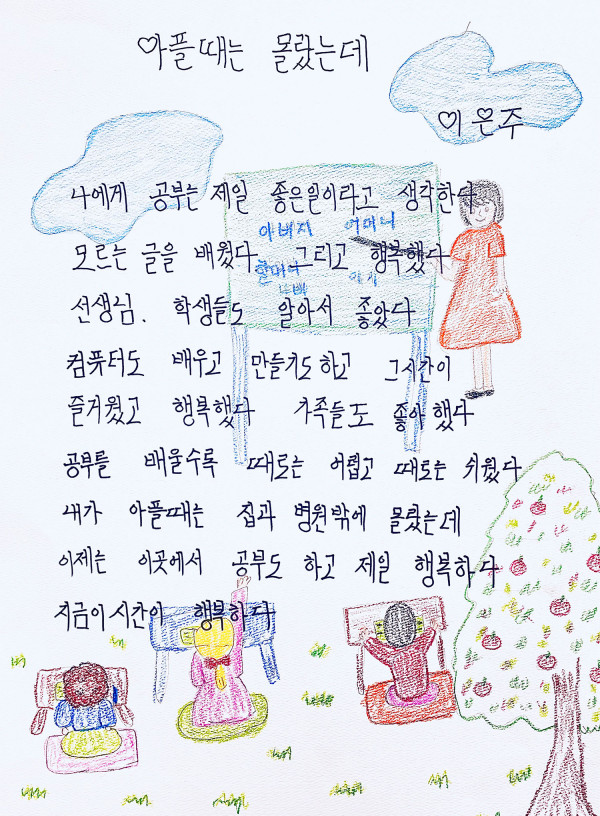 아플때는 몰랐는데
이은주
나에게 공부는 제일 좋은일이라고 생각한다
모르는 글을 배웠다 그리고 행복했다
선생님. 학생들도 알아서 좋았다
컴퓨터도 배우고 만들기도 하고 그시간이
즐거웠고 행복했다 가족들도 좋아했다
공부를 배울수록 때로는 어렵고 때로는 쉬웠다
내가 아플때는 집과 병원밖에 몰랐는데
이제는 이곳에서 공부도 하고 제일 행복하다
지금이시간이 행복하다
아버지 어머니
할머니